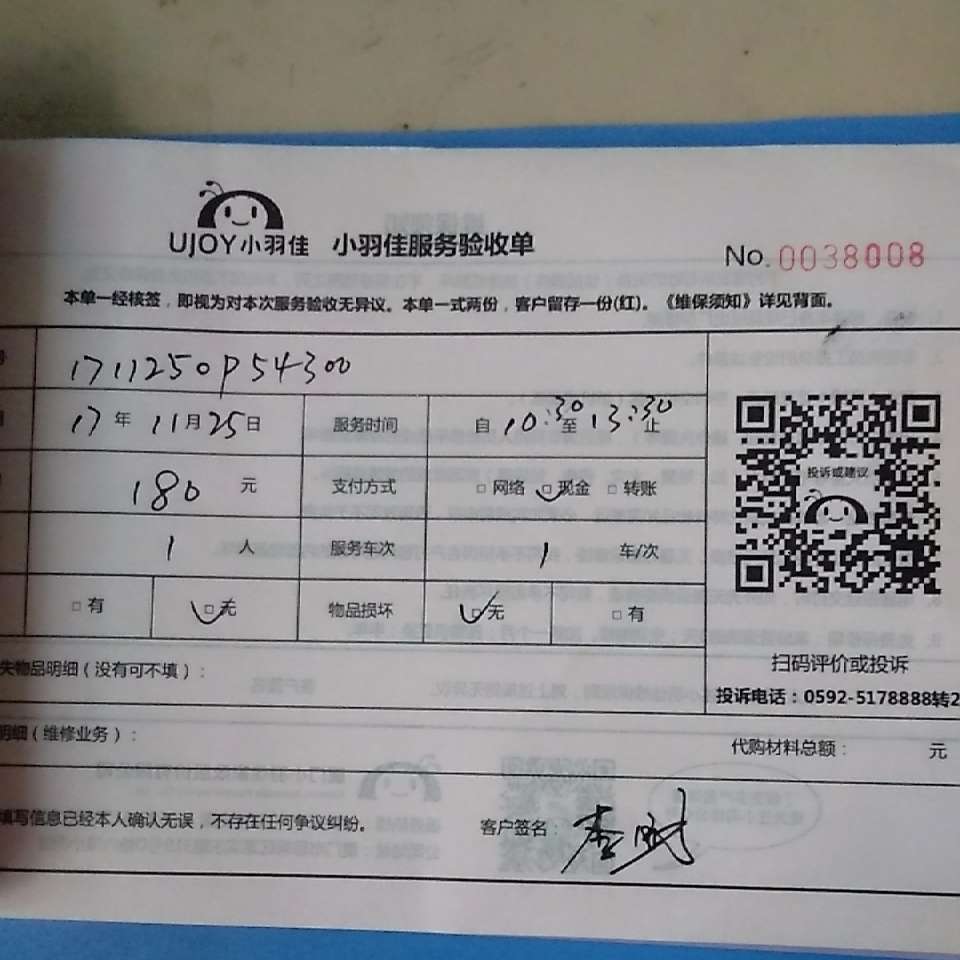 UJOY小羽佳 小羽佳服务验收单
No.0038008
本单一经核签，即视为对本次服务验收无异议。本单一式两份，客户留存一份(红)。《维保须知》详见背面。
1711250P54300
17年11月25日 服务时间 自10:30至13:30止
180元 支付方式 □网络 ☑现金 □转账
投诉或建议
1人 服务车次 1车/次
□有 ☑无 物品损坏 ☑无 □有
失物品明细(没有可不填)：
扫码评价或投诉
投诉电话：0592-5178888转2
明细(维修业务)：
代购材料总额： 元
填写信息已经本人确认无误，不存在任何争议纠纷。 客户签名：